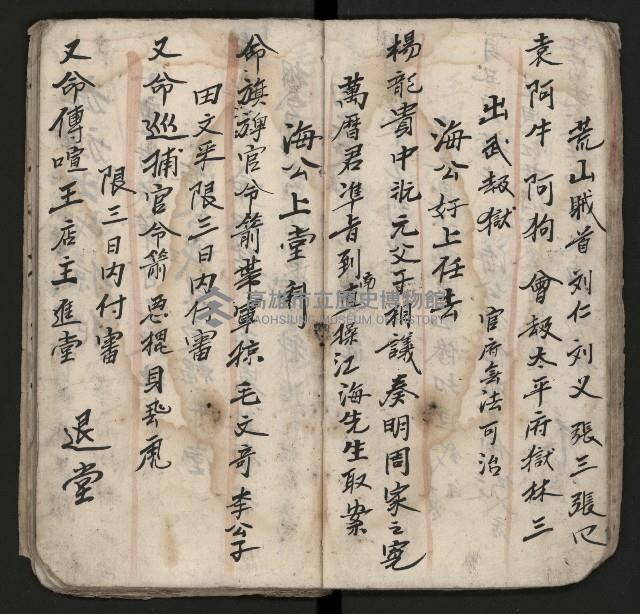 荒山賊首刘仁刘义張三張四
袁阿牛阿狗會刼太平府獄林三
出武刼獄 官府無法可治
海公好上任去
楊龍貴中狀元父子相議奏明周家之寃
萬暦君準旨到南直操江海先生取案
海公上堂
命旗牌官令箭 毛文哥李公子
田文 限三日內付審
又命巡捕官令箭
限三日内付審
又命傳喧王店主進堂 退堂
高雄市立歷史博物館
KAOHSIUNG MUSEUM OF HISTORY